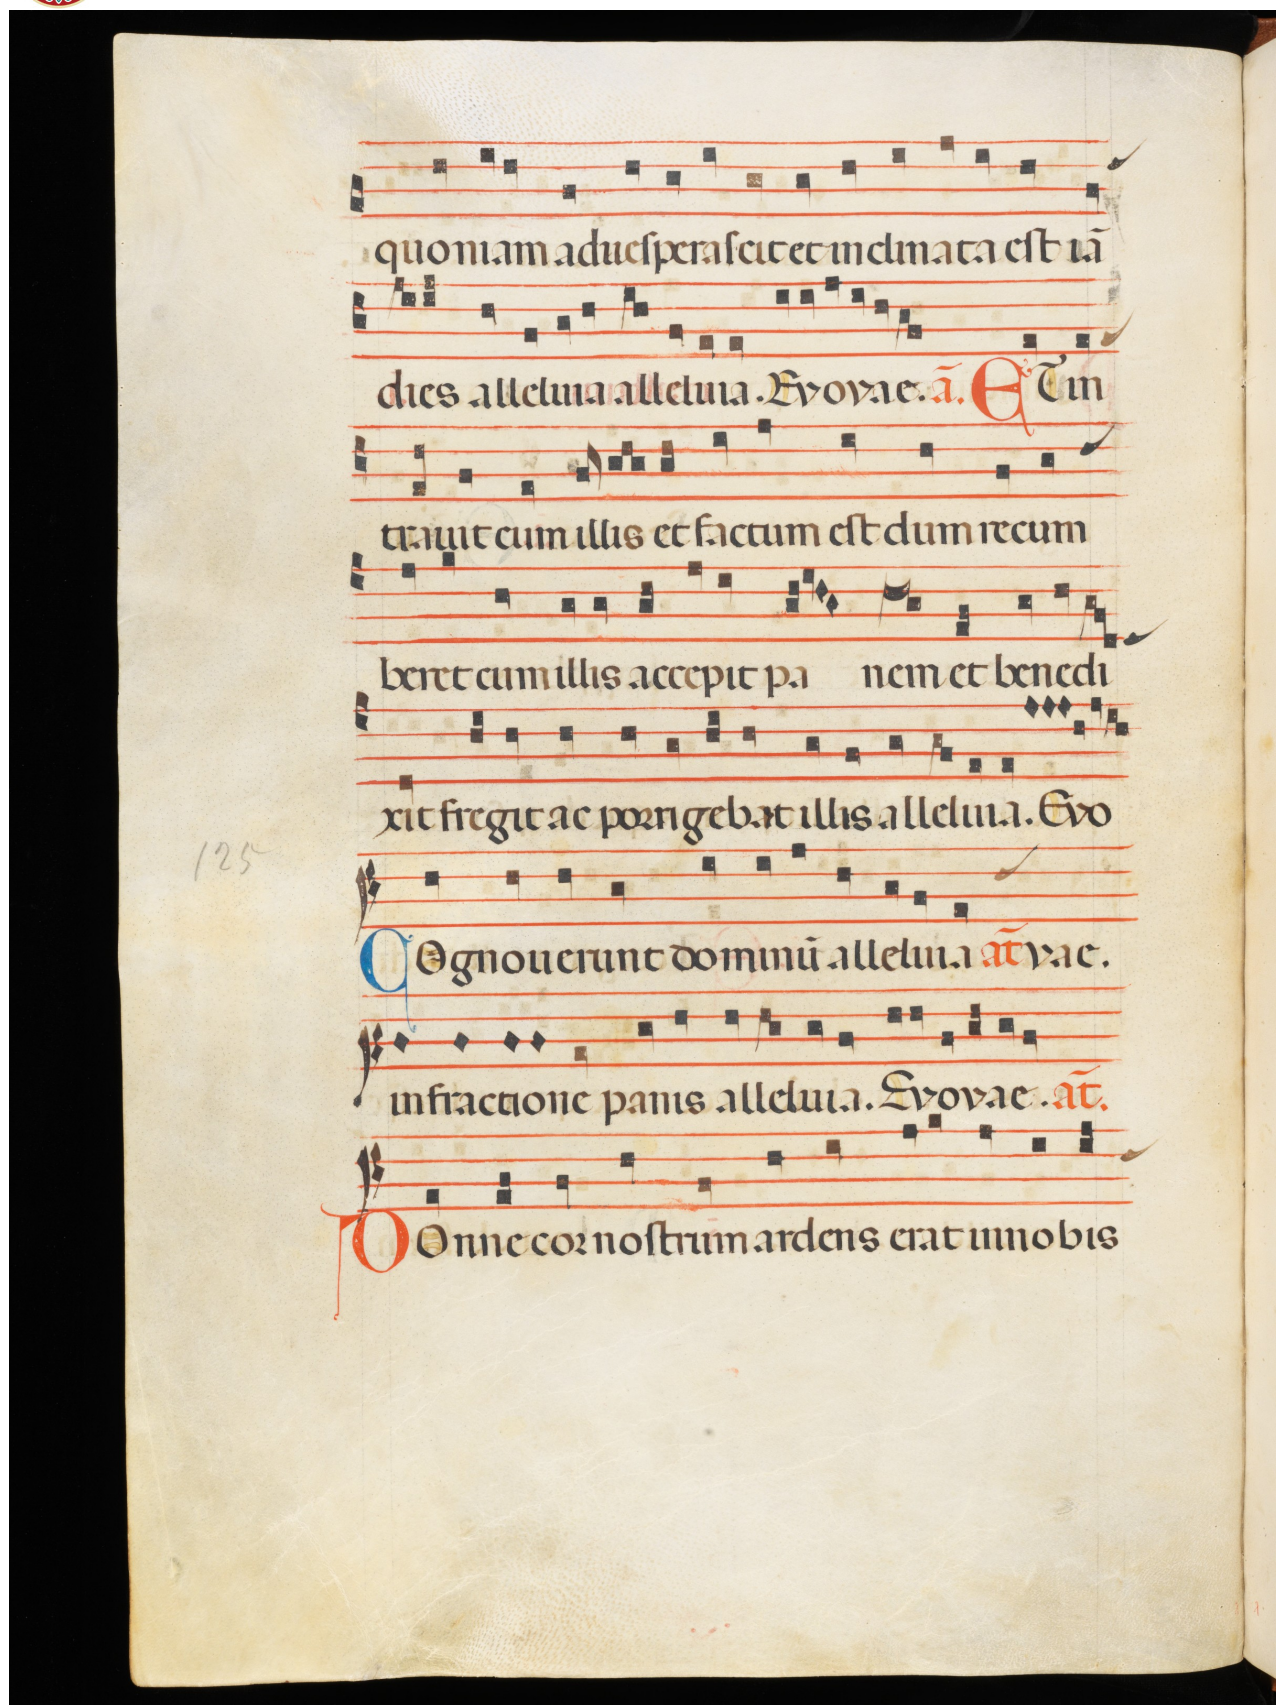 quoniam aduesperascit et inclinata est iã
dies alleluia alleluia. Evovae. ã. ET in
trauit cum illis et factum est dum recum
beret cum illis accepit pa nem et benedi
xit fregit ac porrigebat illis alleluia. Evo
125
COgnouerunt dominũ alleluia at̃ vae.
infractione panis alleluia. Evovae. at̃.
NOnne cor nostrum ardens erat innobis